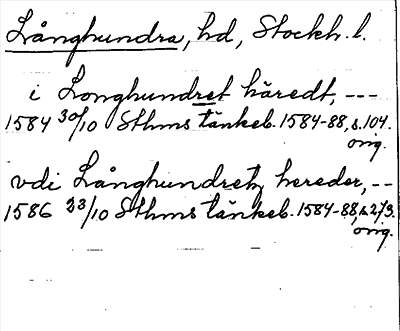 Långhundra, hd, Stockh. l.
i Longhundret häredt, ---
1584 30/10 Sthms tänkeb. 1584-88, s. 104.
orig.
vdi Långhundretz hereder, --
1586 23/10 Sthms tänkeb. 1584-88, s. 273.
orig.